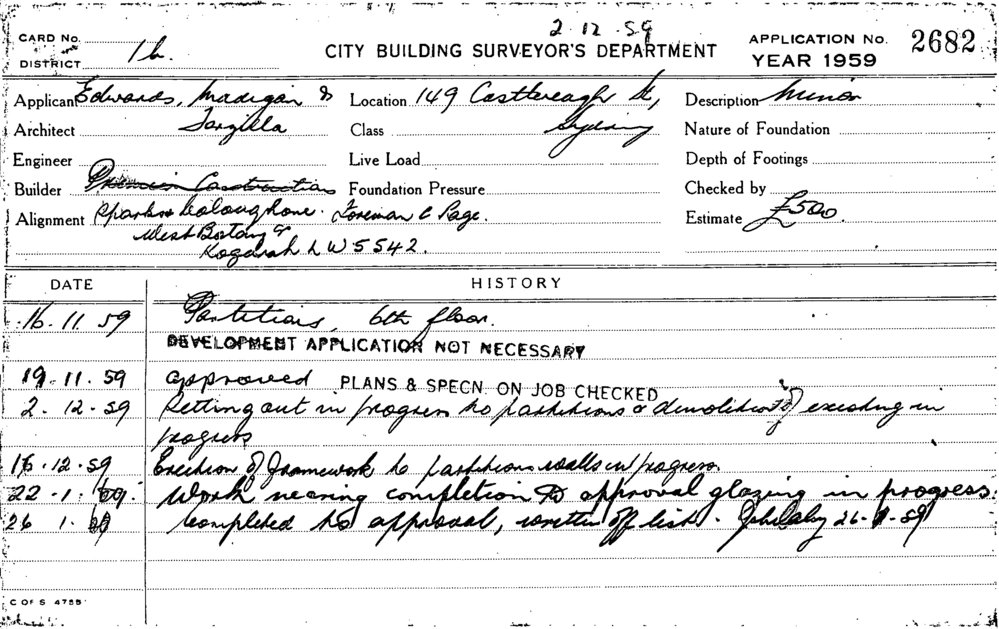 2.12.59
CARD No.
DISTRICT 1b.
CITY BUILDING SURVEYOR'S DEPARTMENT
APPLICATION No. 2682
YEAR 1959
Applicant Edwards, Madigan &
Torzillo
Location 149 Castlereagh St,
Sydney
Description Minor
Architect
Class
Nature of Foundation
Engineer
Live Load
Depth of Footings
Builder Premier Constructions
Foundation Pressure
Checked by
Alignment Sparks Foreman C Page.
West Botany St
Kogarah LW5542.
Estimate £500.
DATE
HISTORY
16.11.59 Partitions, 6th floor.
DEVELOPMENT APPLICATION NOT NECESSARY
19.11.59 approved PLANS & SPECN. ON JOB CHECKED
2.12.59 Setting out in progress to partitions & demolition of existing in
progress
16.12.59 Erection of framework to partition walls in progress.
22.1. Work nearing completion to approval glazing in progress.
26.1. Completed to approval, written off list. 26.1.59
C OF S 4755